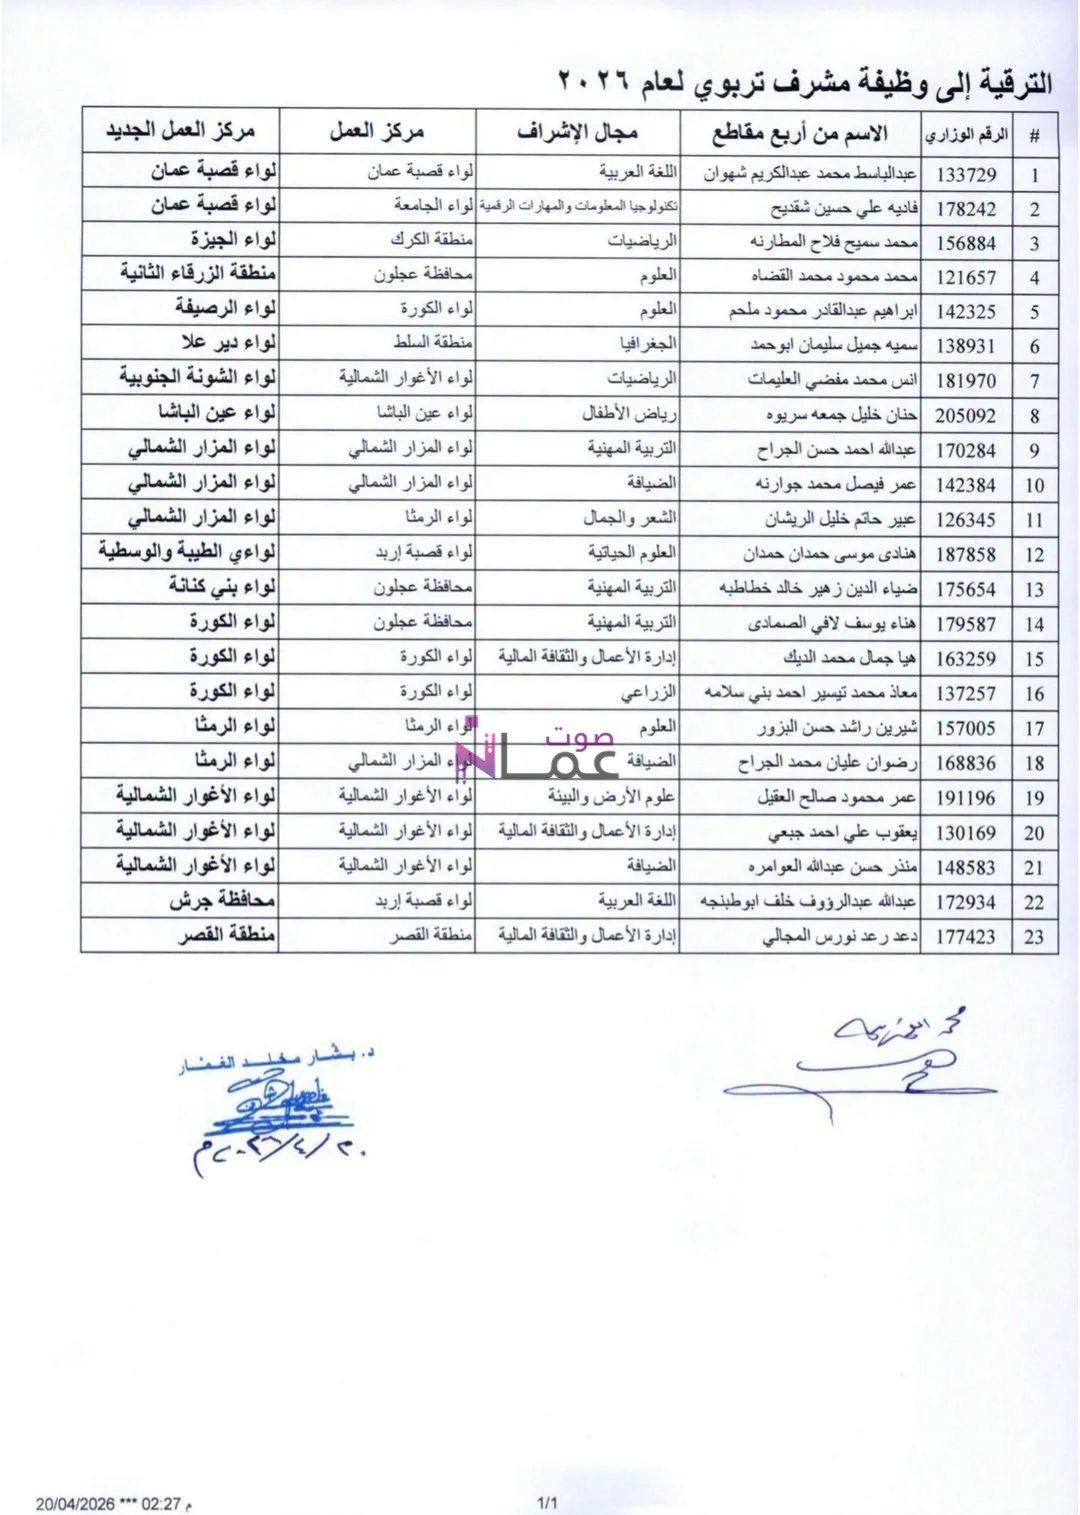 الترقية إلى وظيفة مشرف تربوي لعام ٢٠٢٦
# الرقم الوزاري الاسم من أربع مقاطع مجال الإشراف مركز العمل مركز العمل الجديد
1 133729 عبدالباسط محمد عبدالكريم شهوان اللغة العربية لواء قصبة عمان لواء قصبة عمان
2 178242 فاديه علي حسين شقديح تكنولوجيا المعلومات والمهارات الرقمية لواء الجامعة لواء قصبة عمان
3 156884 محمد سميح فلاح المطارنه الرياضيات منطقة الكرك لواء الجيزة
4 121657 محمد محمود محمد القضاه العلوم محافظة عجلون منطقة الزرقاء الثانية
5 142325 ابراهيم عبدالقادر محمود ملحم العلوم لواء الكورة لواء الرصيفة
6 138931 سميه جميل سليمان ابوحمد الجغرافيا منطقة السلط لواء دير علا
7 181970 انس محمد مفضي العليمات الرياضيات لواء الأغوار الشمالية لواء الشونة الجنوبية
8 205092 حنان خليل جمعه سريوه رياض الأطفال لواء عين الباشا لواء عين الباشا
9 170284 عبدالله احمد حسن الجراح التربية المهنية لواء المزار الشمالي لواء المزار الشمالي
10 142384 عمر فيصل محمد جوارنه الضيافة لواء المزار الشمالي لواء المزار الشمالي
11 126345 عبير حاتم خليل الريشان الشعر والجمال لواء الرمثا لواء المزار الشمالي
12 187858 هنادى موسى حمدان حمدان العلوم الحياتية لواء قصبة إربد لواءي الطيبة والوسطية
13 175654 ضياء الدين زهير خالد خطاطبه التربية المهنية محافظة عجلون لواء بني كنانة
14 179587 هناء يوسف لافي الصمادى التربية المهنية محافظة عجلون لواء الكورة
15 163259 هيا جمال محمد الديك إدارة الأعمال والثقافة المالية لواء الكورة لواء الكورة
16 137257 معاذ محمد تيسير احمد بني سلامه الزراعي لواء الكورة لواء الكورة
17 157005 شيرين راشد حسن البزور العلوم لواء الرمثا لواء الرمثا
18 168836 رضوان عليان محمد الجراح الضيافة لواء المزار الشمالي لواء الرمثا
صوت
عمان
19 191196 عمر محمود صالح العقيل علوم الأرض والبيئة لواء الأغوار الشمالية لواء الأغوار الشمالية
20 130169 يعقوب علي احمد جبعي إدارة الأعمال والثقافة المالية لواء الأغوار الشمالية لواء الأغوار الشمالية
21 148583 منذر حسن عبدالله العوامره الضيافة لواء الأغوار الشمالية لواء الأغوار الشمالية
22 172934 عبدالله عبدالرؤوف خلف ابوطبنجه اللغة العربية لواء قصبة إربد محافظة جرش
23 177423 دعد رعد نورس المجالي إدارة الأعمال والثقافة المالية منطقة القصر منطقة القصر
محمد
د. بشار مخلد الغماز
٢٠/٤/٢٠٢٦م
1/1
20/04/2026 *** 02:27 م